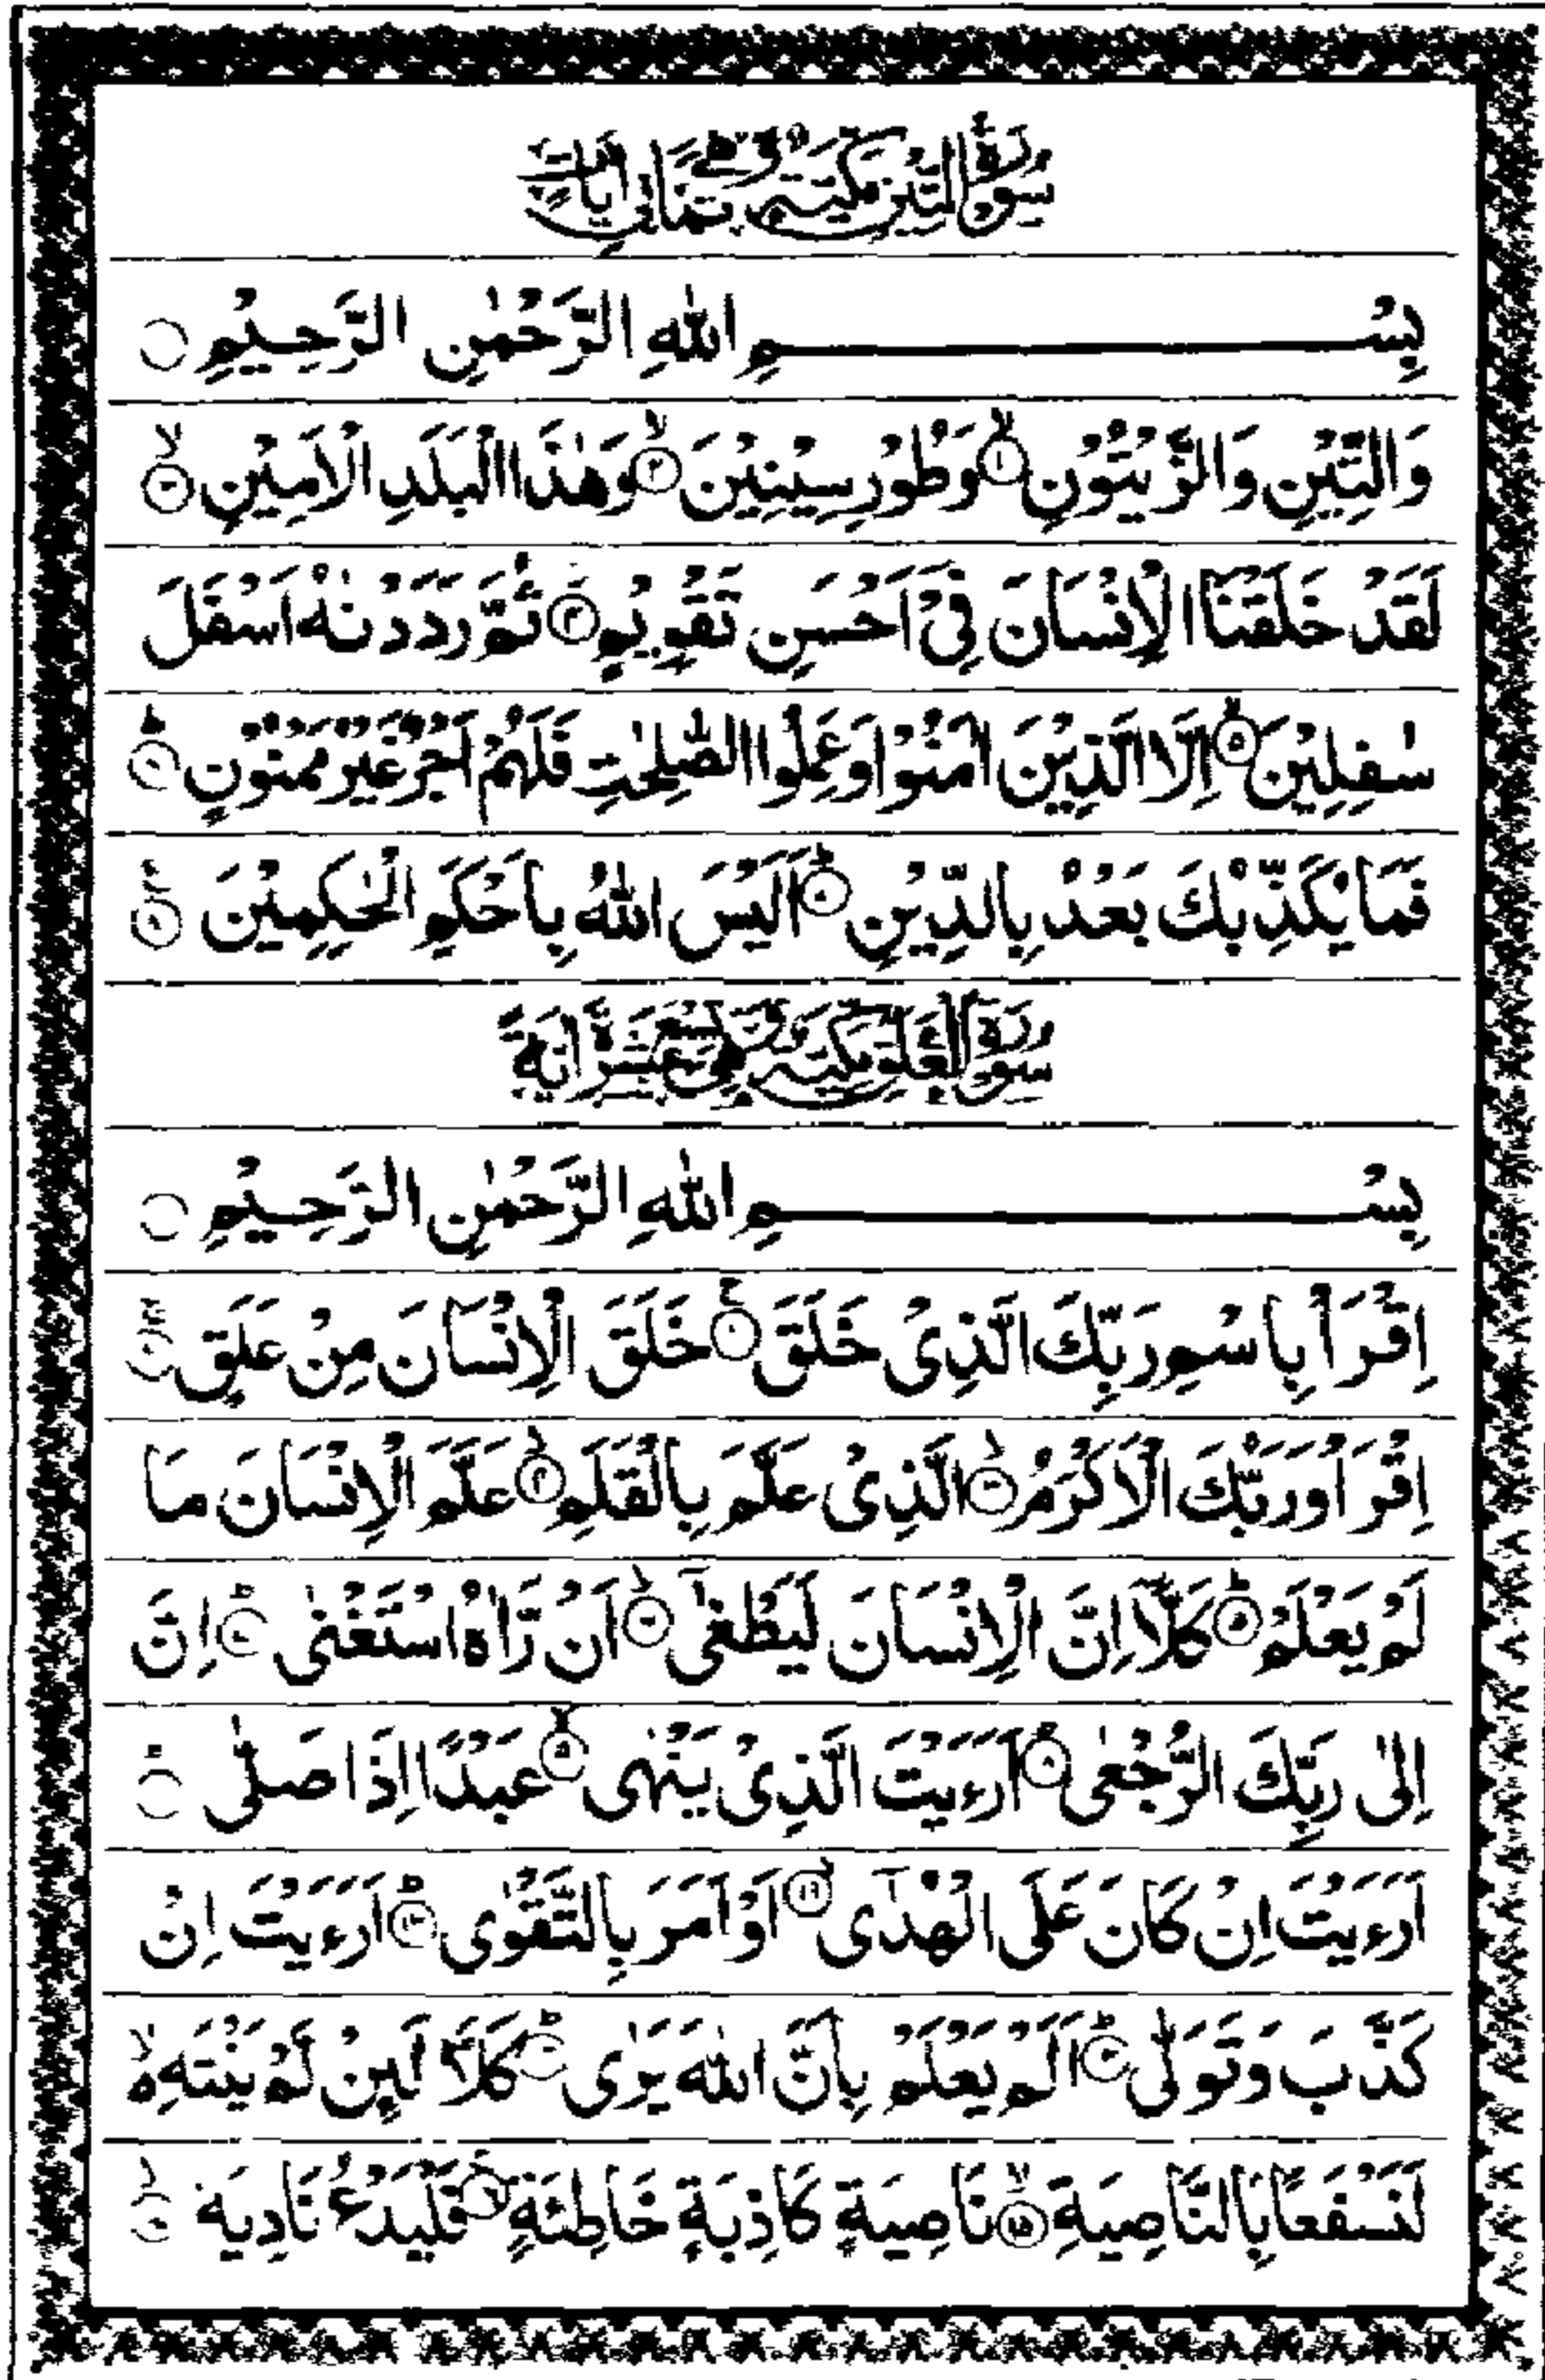 سُوْرَةُ التِّيْنِ مَكِّيَّةٌ وَّهِيَ ثَمَانِيْ اٰيَاتٍ
بِسْمِ اللهِ الرَّحْمٰنِ الرَّحِيْمِ ○
وَالتِّيْنِ وَالزَّيْتُوْنِ ۙ﴿١﴾ وَطُوْرِ سِيْنِيْنَ ۙ﴿٢﴾ وَهٰذَا الْبَلَدِ الْاَمِيْنِ ۙ﴿٣﴾
لَقَدْ خَلَقْنَا الْاِنْسَانَ فِيْٓ اَحْسَنِ تَقْوِيْمٍ ﴿٤﴾ ثُمَّ رَدَدْنٰهُ اَسْفَلَ
سٰفِلِيْنَ ۙ﴿٥﴾ اِلَّا الَّذِيْنَ اٰمَنُوْا وَعَمِلُوا الصّٰلِحٰتِ فَلَهُمْ اَجْرٌ غَيْرُ مَمْنُوْنٍ ؕ﴿٦﴾
فَمَا يُكَذِّبُكَ بَعْدُ بِالدِّيْنِ ؕ﴿٧﴾ اَلَيْسَ اللهُ بِاَحْكَمِ الْحٰكِمِيْنَ ﴿٨﴾
سُوْرَةُ الْعَلَقِ مَكِّيَّةٌ وَّهِيَ تِسْعَ عَشْرَةَ اٰيَةً
بِسْمِ اللهِ الرَّحْمٰنِ الرَّحِيْمِ ○
اِقْرَاْ بِاسْمِ رَبِّكَ الَّذِيْ خَلَقَ ۚ﴿١﴾ خَلَقَ الْاِنْسَانَ مِنْ عَلَقٍ ﴿٢﴾
اِقْرَاْ وَرَبُّكَ الْاَكْرَمُ ۙ﴿٣﴾ الَّذِيْ عَلَّمَ بِالْقَلَمِ ۙ﴿٤﴾ عَلَّمَ الْاِنْسَانَ مَا
لَمْ يَعْلَمْ ؕ﴿٥﴾ كَلَّآ اِنَّ الْاِنْسَانَ لَيَطْغٰٓى ۙ﴿٦﴾ اَنْ رَّاٰهُ اسْتَغْنٰى ؕ﴿٧﴾ اِنَّ
اِلٰى رَبِّكَ الرُّجْعٰى ؕ﴿٨﴾ اَرَءَيْتَ الَّذِيْ يَنْهٰى ۙ﴿٩﴾ عَبْدًا اِذَا صَلّٰى ؕ﴿١٠﴾
اَرَءَيْتَ اِنْ كَانَ عَلَى الْهُدٰٓى ۙ﴿١١﴾ اَوْ اَمَرَ بِالتَّقْوٰى ؕ﴿١٢﴾ اَرَءَيْتَ اِنْ
كَذَّبَ وَتَوَلّٰى ؕ﴿١٣﴾ اَلَمْ يَعْلَمْ بِاَنَّ اللهَ يَرٰى ؕ﴿١٤﴾ كَلَّا لَئِنْ لَّمْ يَنْتَهِ ۙ
لَنَسْفَعًا بِالنَّاصِيَةِ ۙ﴿١٥﴾ نَاصِيَةٍ كَاذِبَةٍ خَاطِئَةٍ ۚ﴿١٦﴾ فَلْيَدْعُ نَادِيَهٗ ۙ﴿١٧﴾